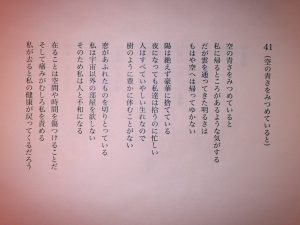 41
(空の青さをみつめていると)
空の青さをみつめていると
私に帰るところがあるような気がする
だが雲を通ってきた明るさは
もはや空へは帰ってゆかない
陽は絶えず豪華に捨てている
夜になっても私達は拾うのに忙しい
人はすべていやしい生れなので
樹のように豊かに休むことがない
窓があふれたものを切りとっている
私は宇宙以外の部屋を欲しない
そのため私は人と不和になる
在ることは空間や時間を傷つけることだ
そして痛みがむしろ私を責める
私が去ると私の健康が戻ってくるだろう